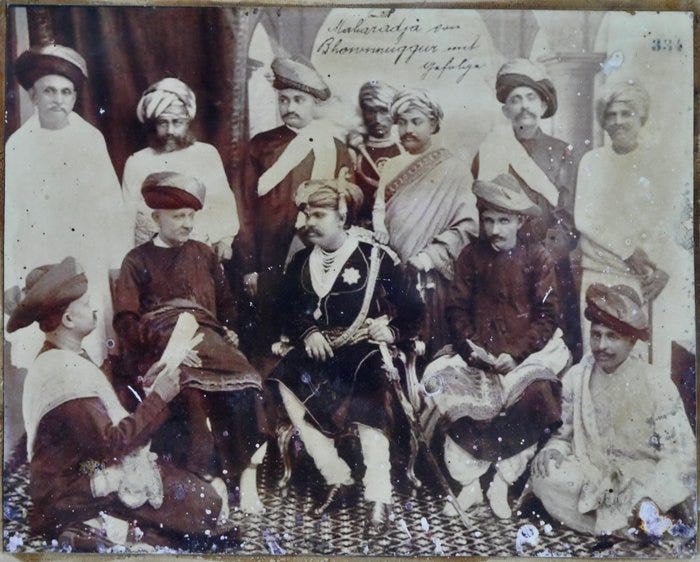 Maharadja von
Bhownnuggur mit
Gefolge
334